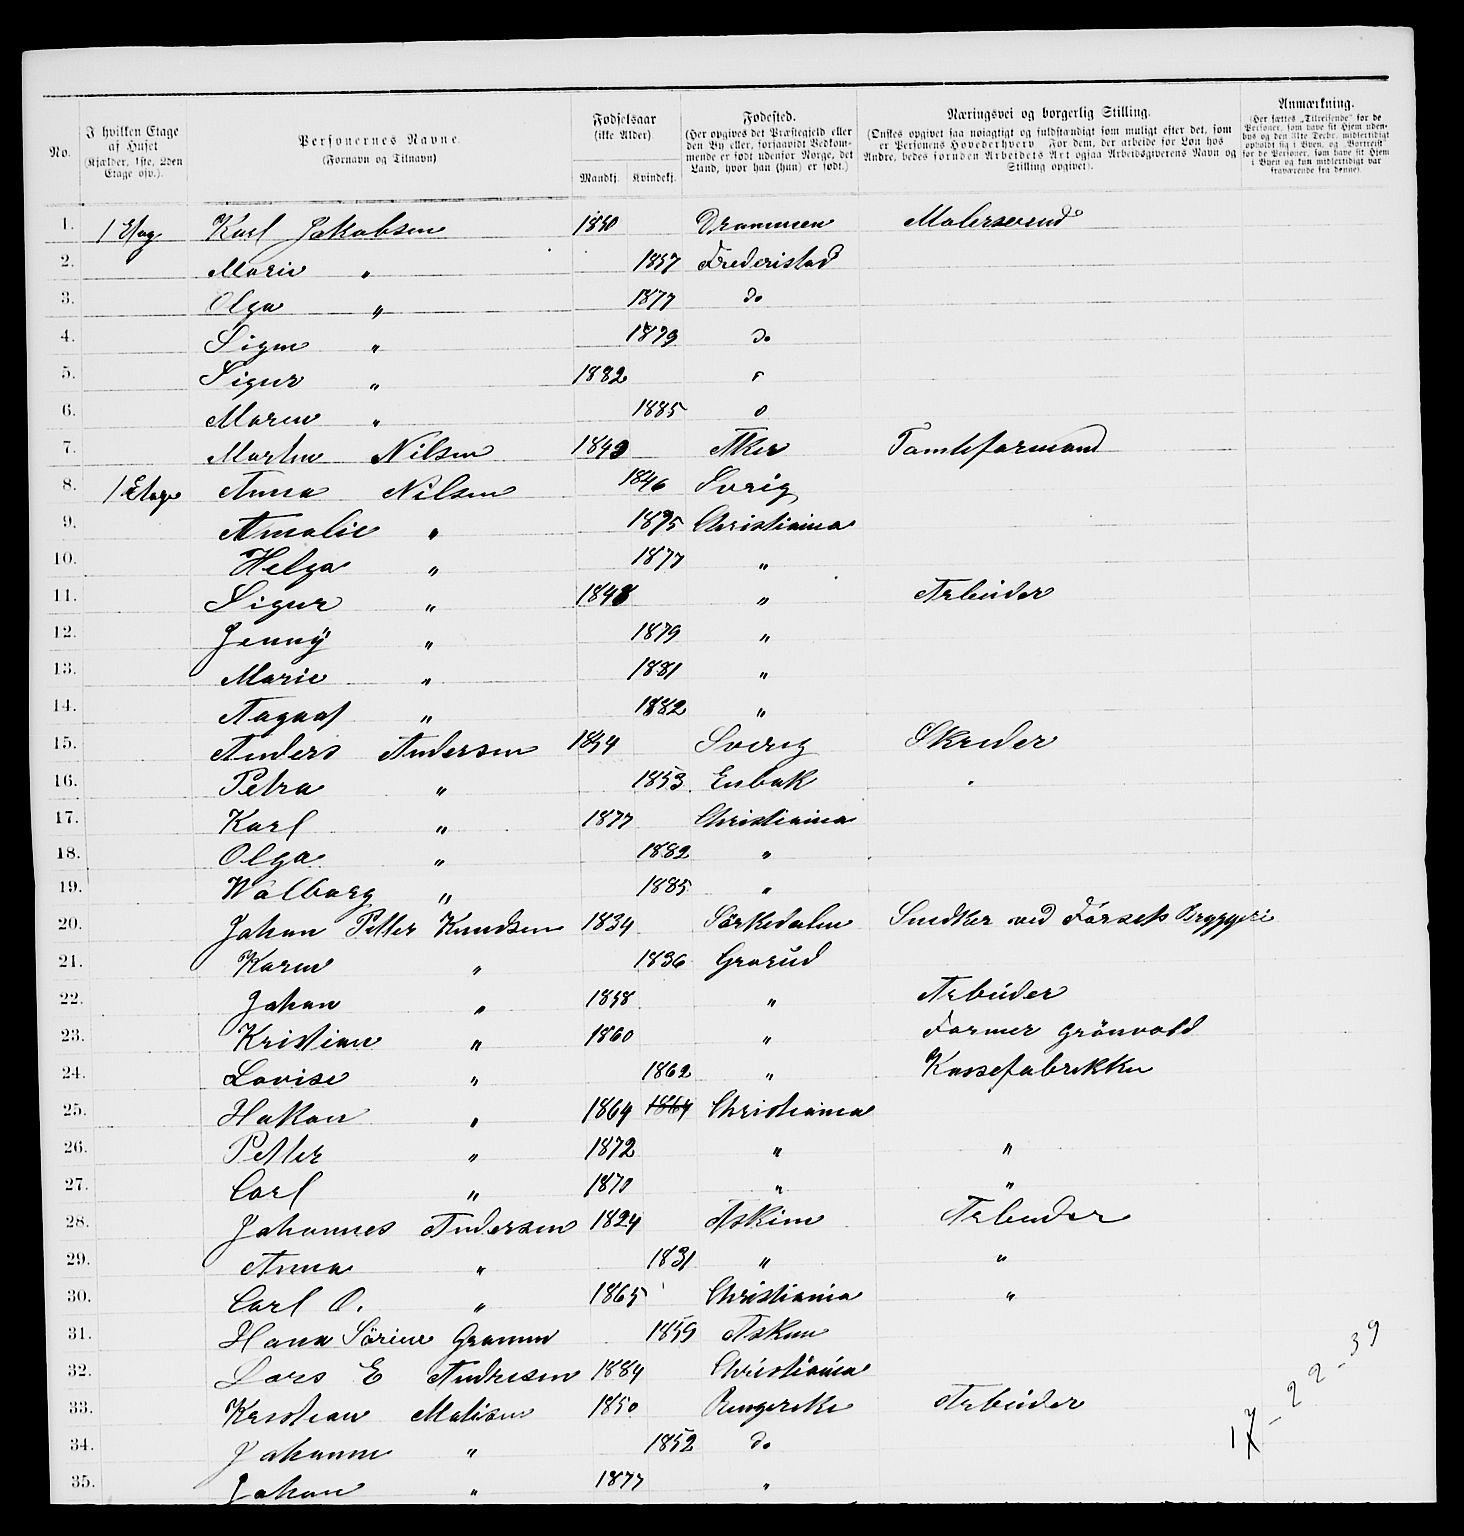 No.
I hvilken Etage af Huset (Kjælder, 1ste, 2den Etage osv.).
Personernes Navne. (Fornavn og Tilnavn)
Fødselsaar (ikke Alder). Mandkj. Kvindekj.
Fødested. (Her opgives det Præstegjeld eller den By eller, forsaavidt Bedkommende er født udenfor Norge, det Land, hvor han (hun) er født.)
Næringsvei og borgerlig Stilling. (Ønskes opgivet saa nøiagtigt og fuldstændigt som muligt efter det, som er Personens Hovederhverv. For dem, der arbeide for Løn hos Andre, bedes foruden Arbeidets Art ogsaa Arbeidsgiverens Navn og Stilling opgivet).
Anmærkning. (Her sættes „Tilreisende" for de Personer, som have sit Hjem udenbys og den 31te Decbr. midlertidigt opholdt sig i Byen, og „Bortreist" for de Personer, som have sit Hjem i Byen og kun midlertidigt var fraværende fra denne).
1. 1 Etag Karl Jakobsen 1850 Drammen Malersvend
2. Marie " 1857 Frederistad
3. Olga " 1877 do
4. Signe " 1879 do
5. Sigur " 1882
6. Maren " 1885 o
7. Martin Nilsen 1843 Aker Tomteformand
8. 1 Etage Anna Nilsen 1846 Sverig
9. Amalie " 1875 Christiania
10. Helga " 1877 "
11. Sigur " 1848 " Arbeider
12. Jenny " 1879 "
13. Marie " 1881 "
14. Aagaat " 1882 "
15. Anders Andersen 1854 Sverig Skreder
16. Petra " 1853 Enbak
17. Karl " 1877 Christiania
18. Olga " 1882 "
19. Walborg " 1885 "
20. Johan Petter Knudsen 1834 Sörkedalen Snedker ved Forsets Bryggeri
21. Karen " 1836 Grorud
22. Johan " 1858 " Arbeider
23. Kristian " 1860 " Former Grönvold
24. Lovise " 1862 " Kassefabrikken
25. Hakon " 1864 1864 Christiania
26. Petter " 1872 " "
27. Carl " 1870 " "
28. Johannes Andersen 1824 Askim Arbeider
29. Anna " 1831 " "
30. Carl O. " 1865 Christiania "
31. Hana Sörine Gramm 1859 Askim
32. Lars E Andresen 1884 Christiania
33. Kristian Matisen 1850 Ringerike Arbeider
34. Johanne " 1852 do
35. Johan " 1877 "
17 - 22 - 39